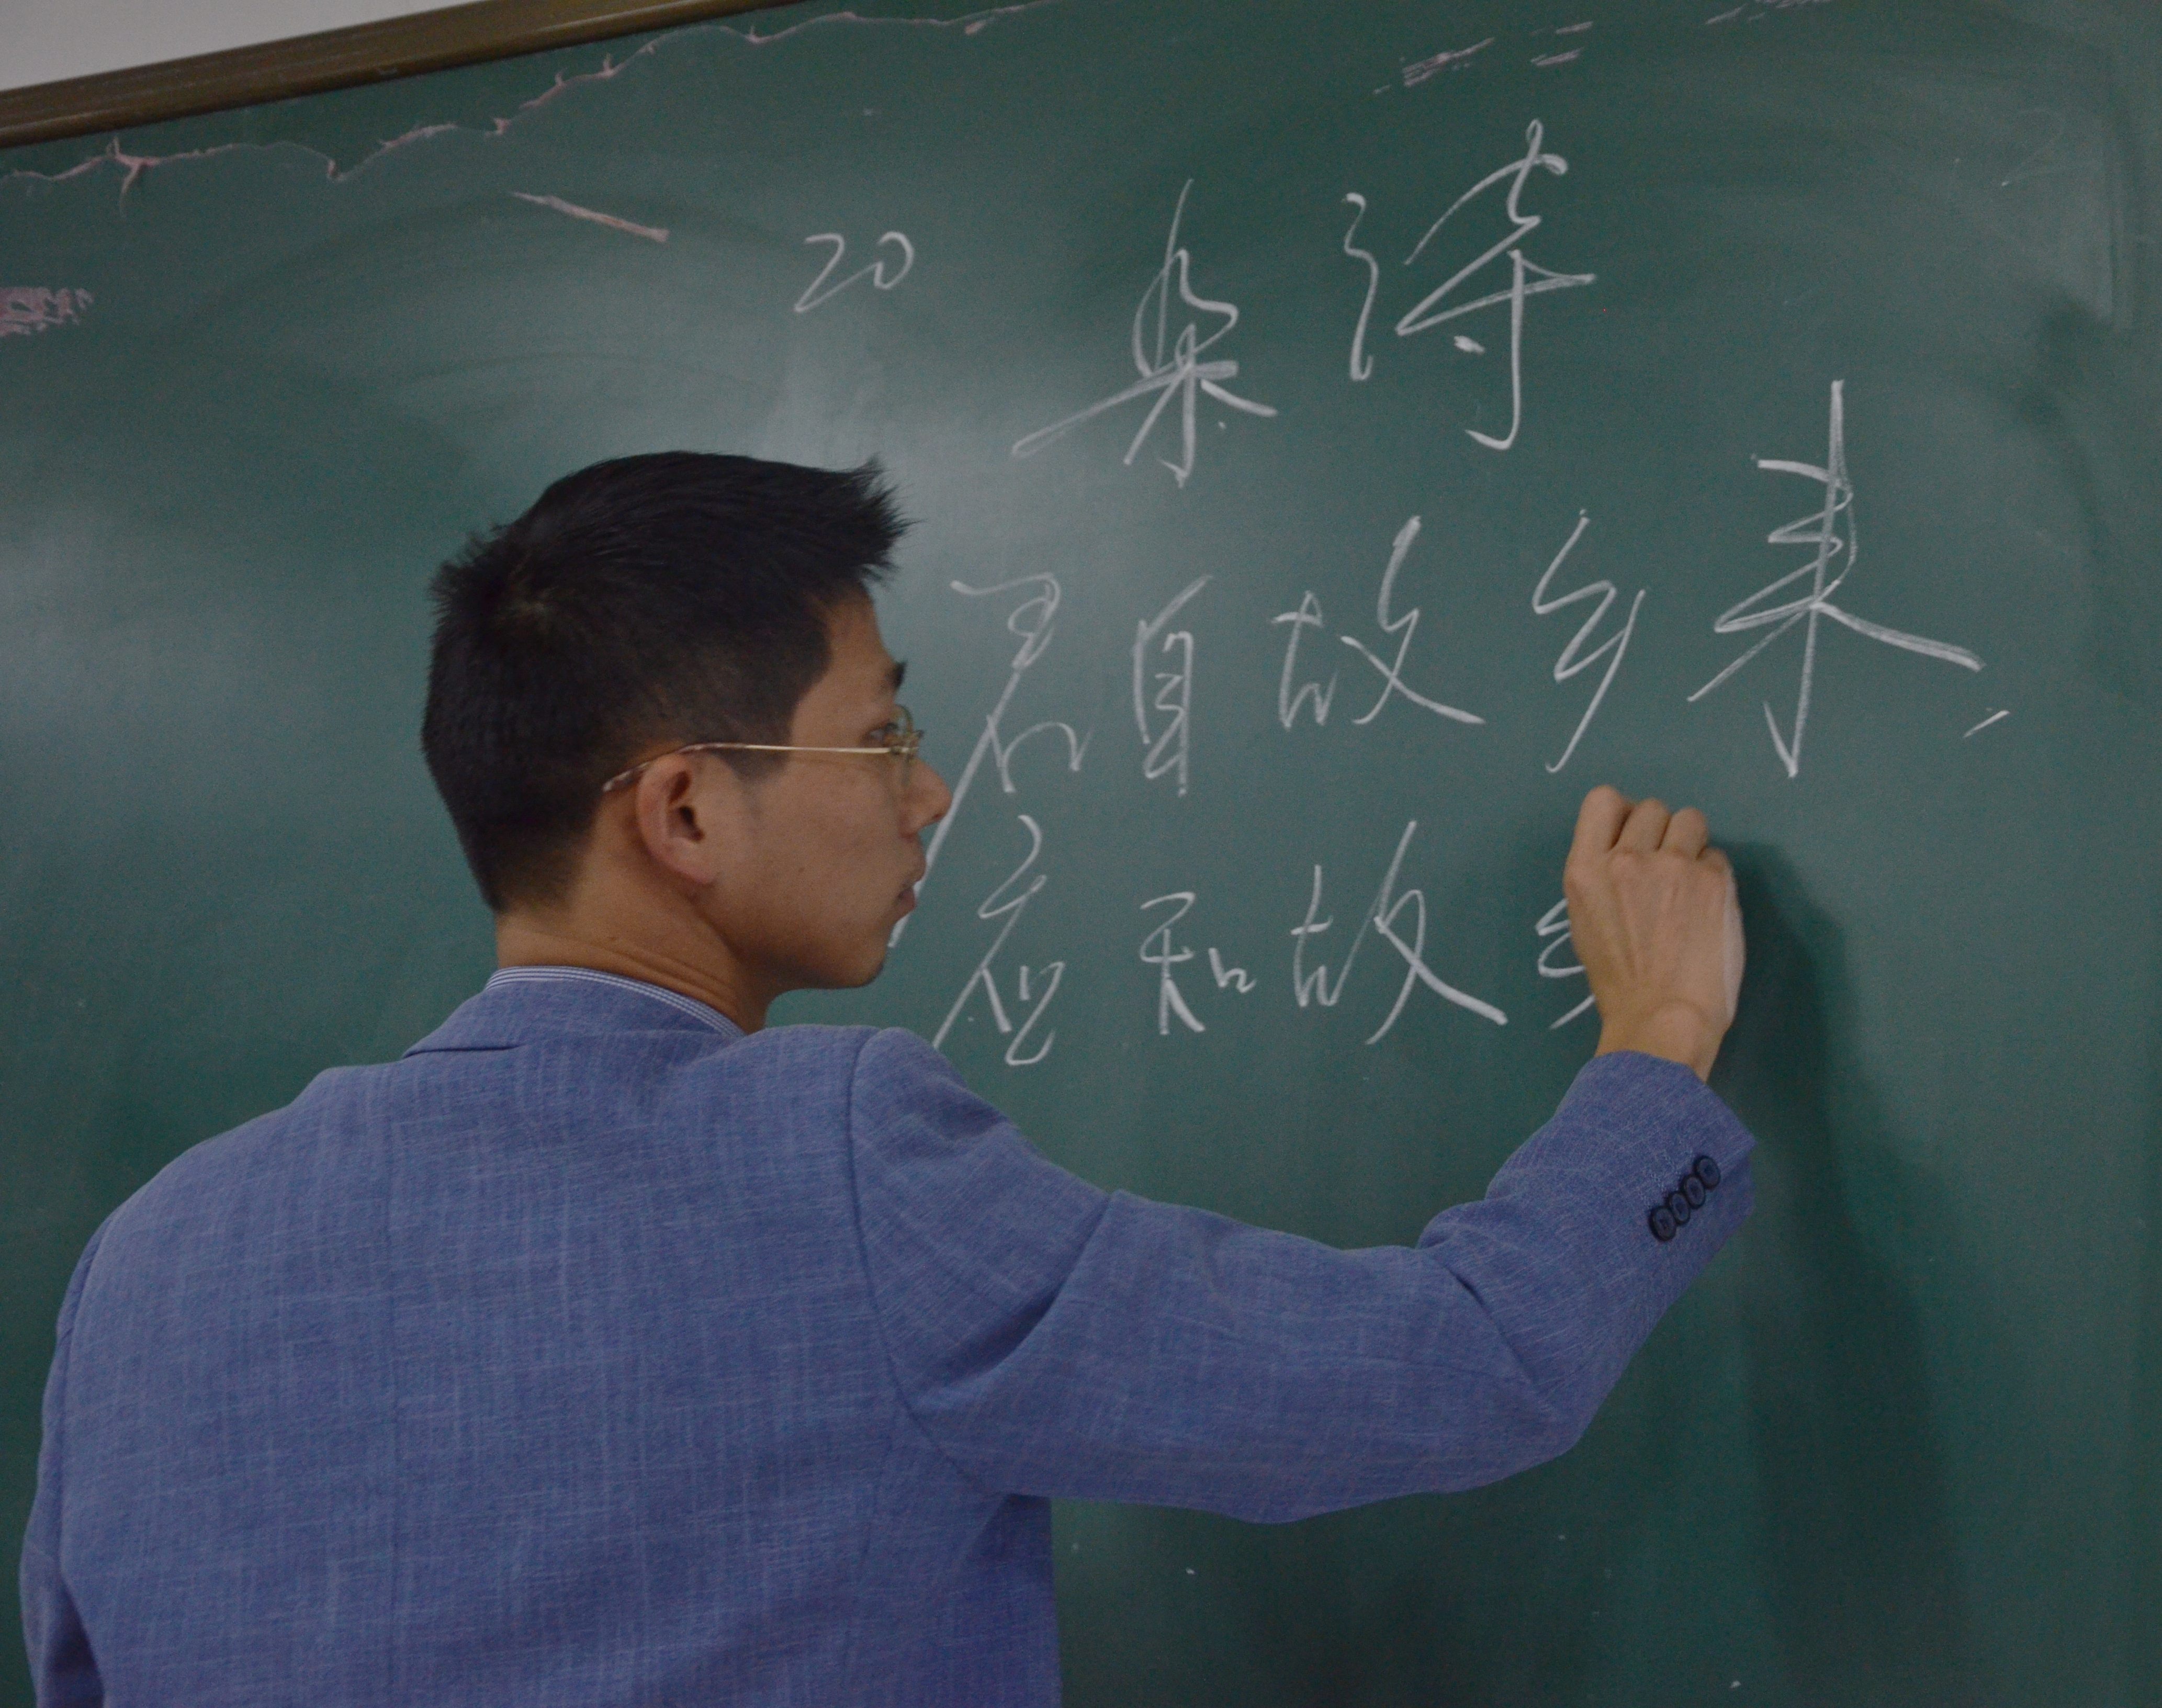 20
杂诗
君自故乡来,
应知故乡